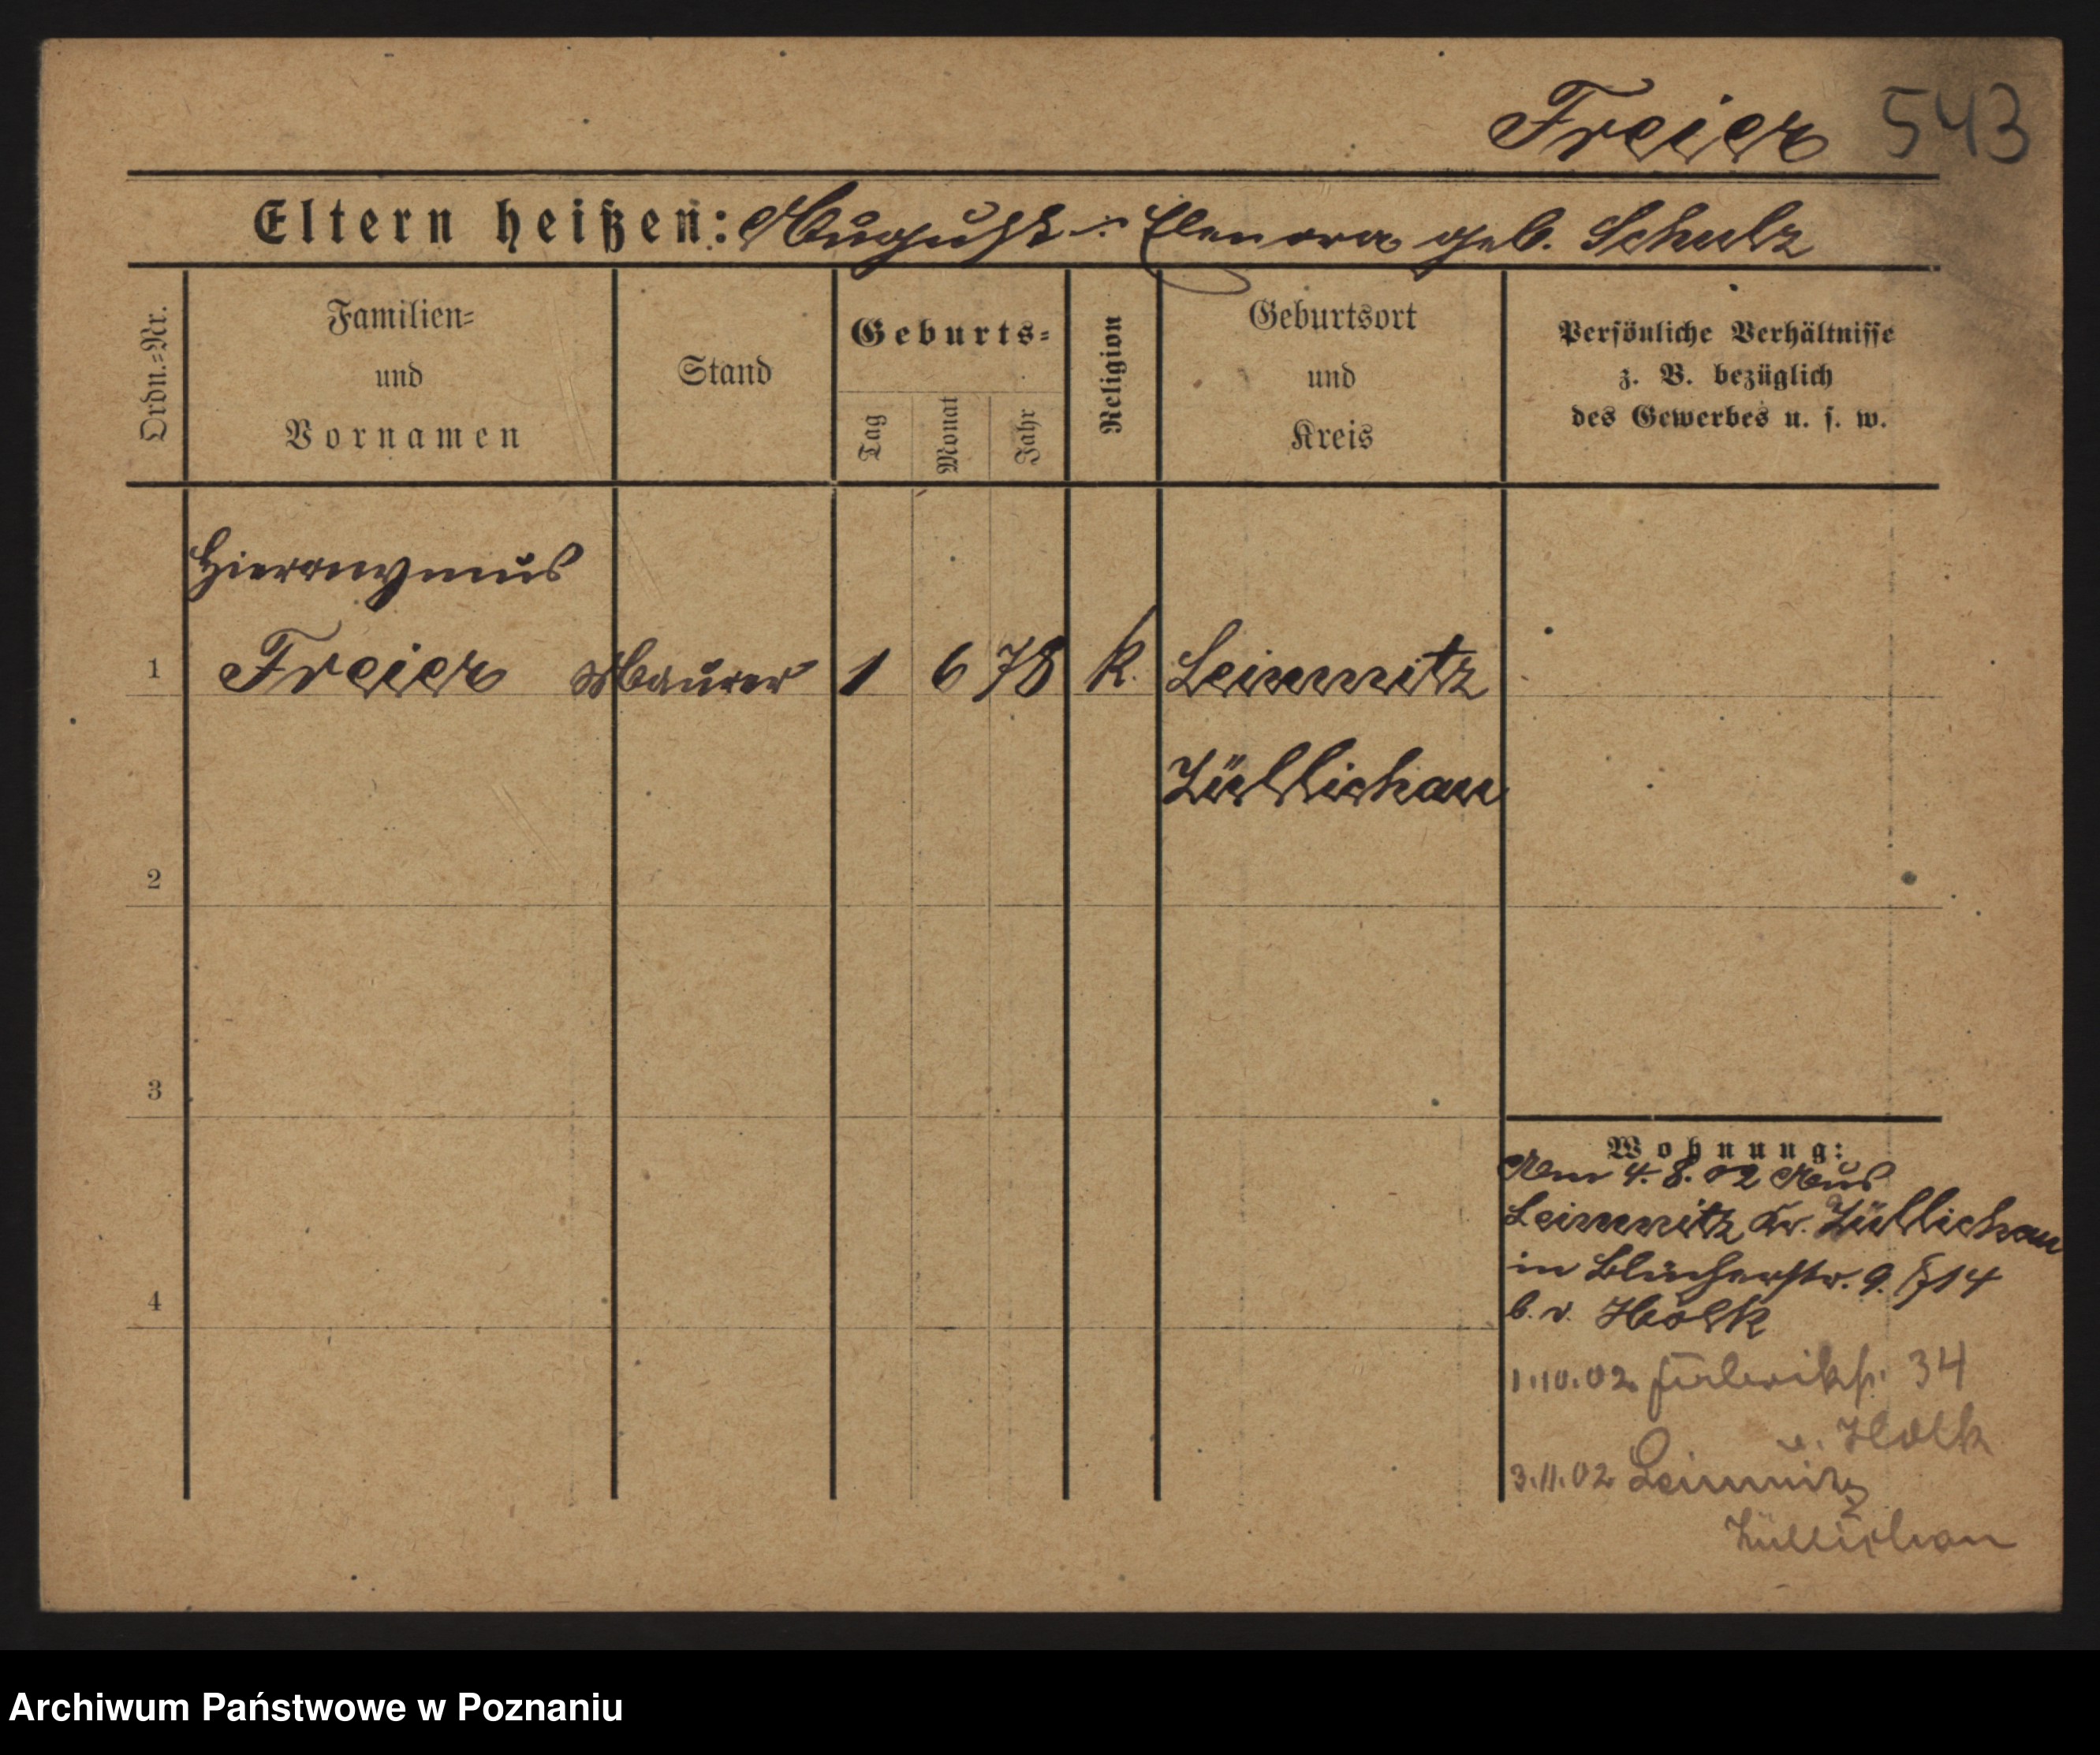 Freier 543
Eltern heißen: August u. Elenora geb. Schulz
Ordn.-Nr.
Familien-
und
Vornamen
Stand
Geburts-
Tag
Monat
Jahr
Religion
Geburtsort
und
Kreis
Persönliche Verhältnisse
z. B. bezüglich
des Gewerbes u. s. w.
Hieronymus
1 Freier Maurer 1 6 78 k. Leimnitz
Züllichau
2
3
4
Wohnung:
Am 4. 8. 02 Aus
Leimnitz Kr. Züllichau
in Blücherstr. 9. 14
b. v. Holk
1.10.02 Fabrikstr. 34
v. Holk
3.11.02 Leimnitz
Züllichau
Archiwum Państwowe w Poznaniu